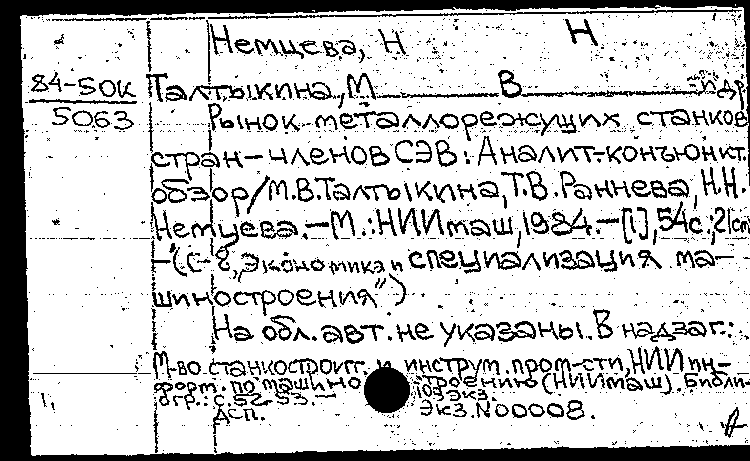 Немцева, Н Н
84-50К Талтыкина, М В и др
5063 Рынок металлорежущих станков
стран-членов СЭВ: Аналит.-конъюнкт.
обзор/М.В.Талтыкина, Т.В.Раннева, Н.Н.
Немцева.-М.:НИИмаш, 1984.-[1], 54с.; 21см
-(С-8, Экономика и специализация ма-
шиностроения")
На обл. авт. не указаны. В надзаг.:
М-во станкостроит. и инструм. пром-сти, НИИ ин-
форм. по машиностроению (НИИмаш). Библи-
огр.: с.52-53.- 109экз.
ДСП. Экз.N00008.